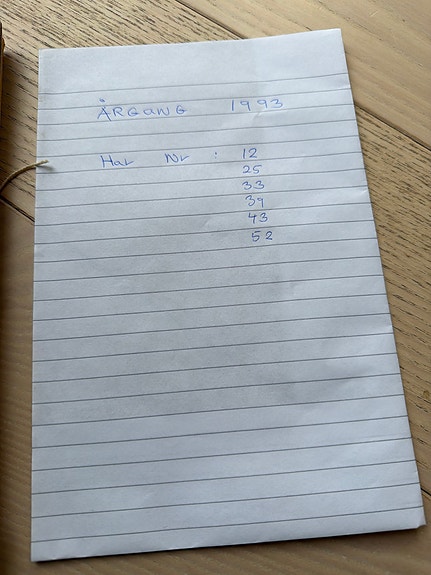 ÅRGANG 1993
Har Nr : 12
25
33
39
43
52